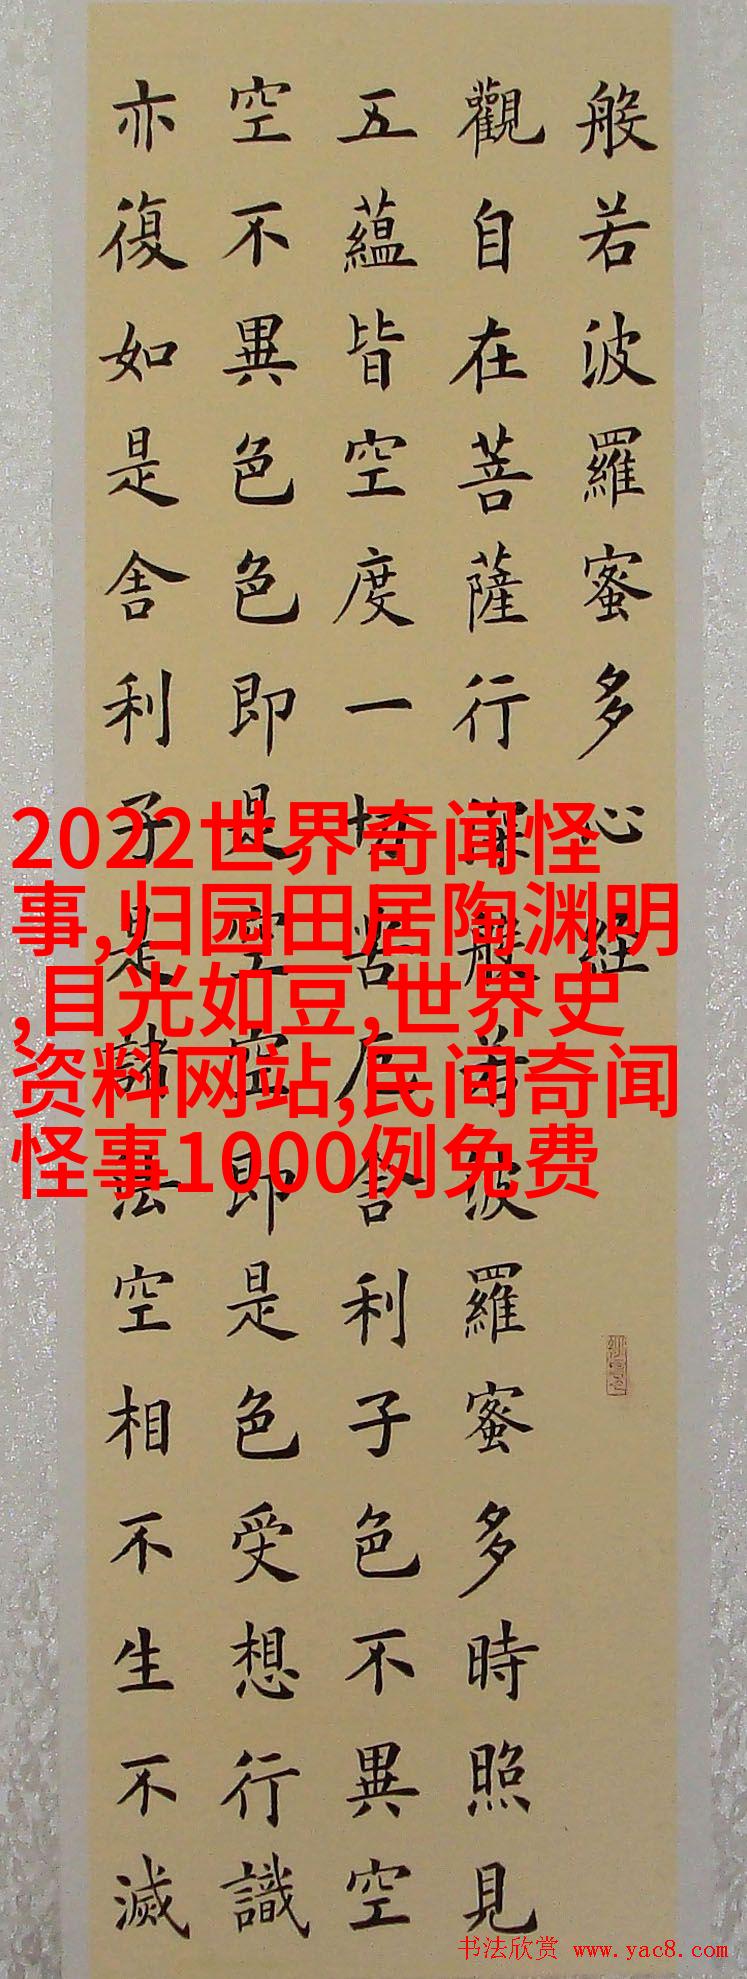 般若波羅蜜多心経
觀自在菩薩行深般若波羅蜜多時照見
五蘊皆空度一切苦厄舍利子色不異空
空不異色色即是空空即是色受想行識
亦復如是舍利子是諸法空相不生不滅
2022世界奇闻怪
事,归园田居陶渊明
,目光如豆,世界史
资料网站,民间奇闻
怪事1000例免费
书法欣赏 www.yac8.com